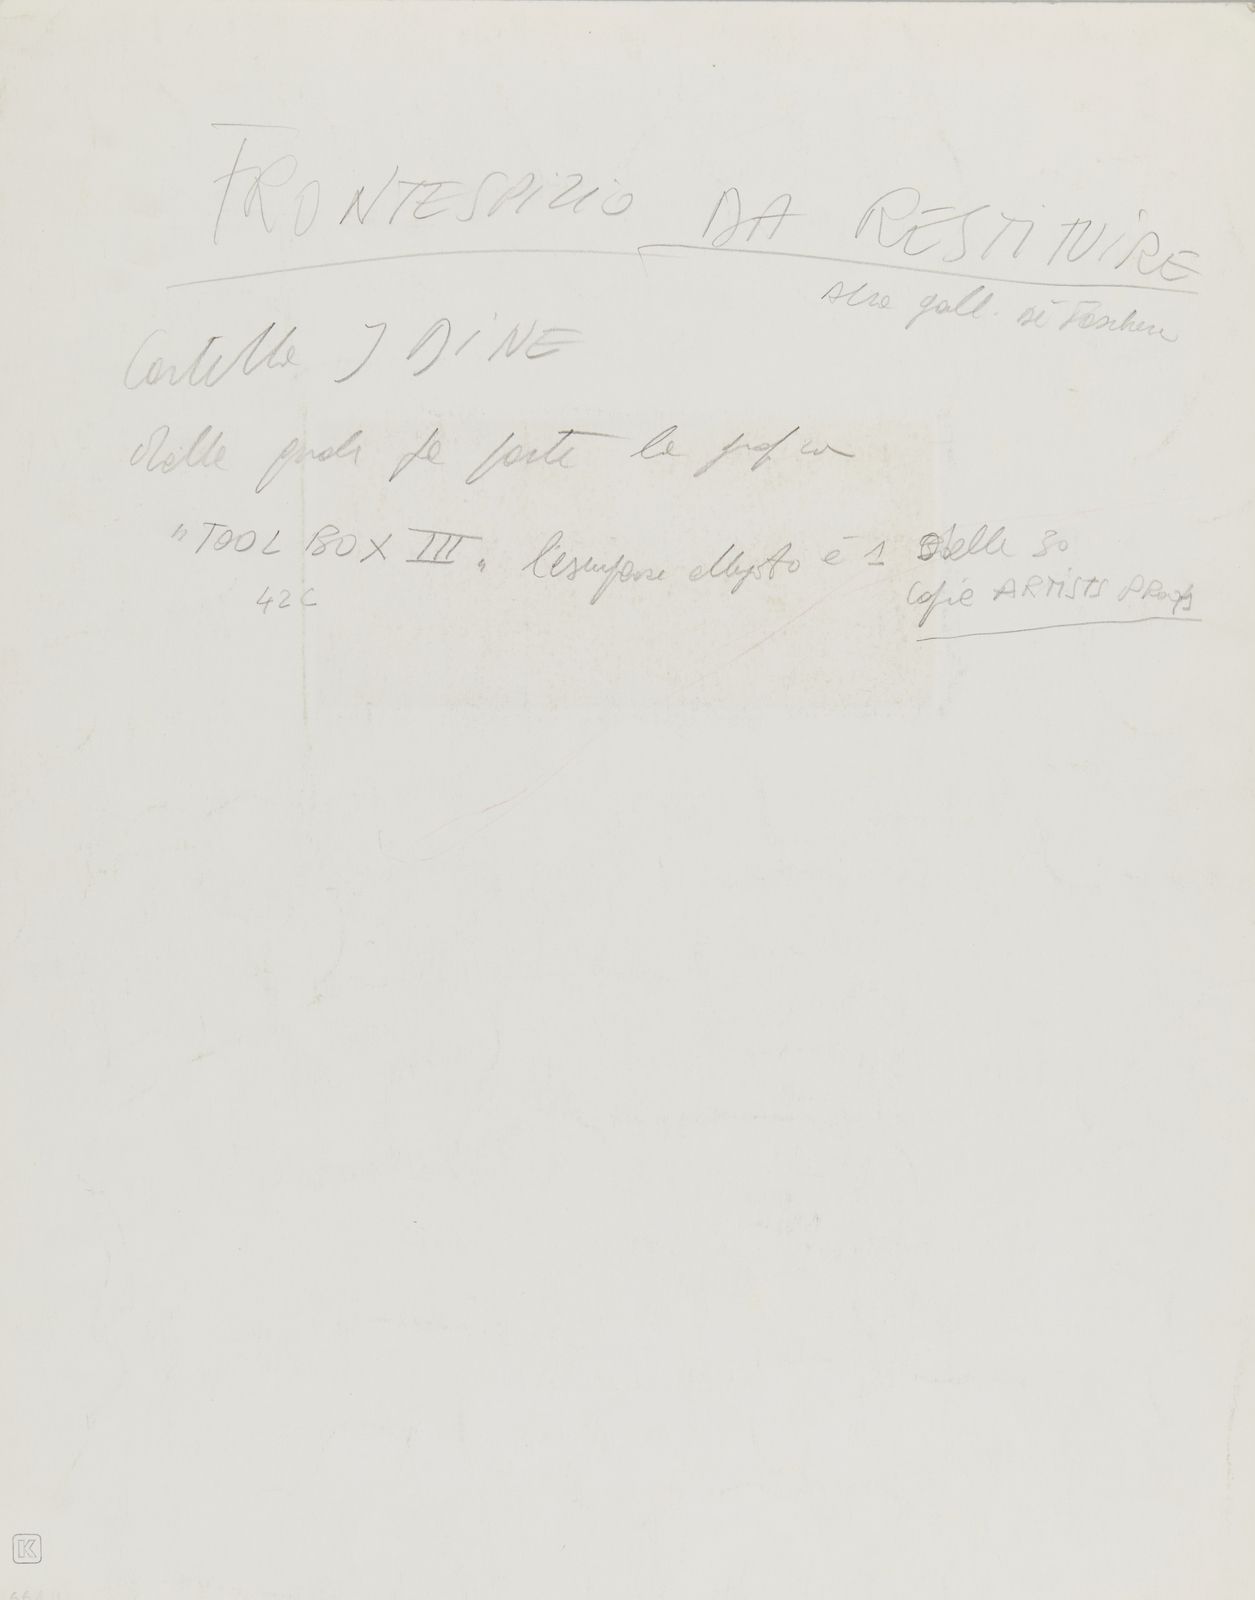 FRONTESPIZIO DA RESTITUIRE
alla gall. dè Foscherari
Cartella J DINE
della quale fa parte la grafica
"TOOL BOX III" l'esemplare allegato è 1 delle 30
42C
copie ARTISTS PROOFS
K